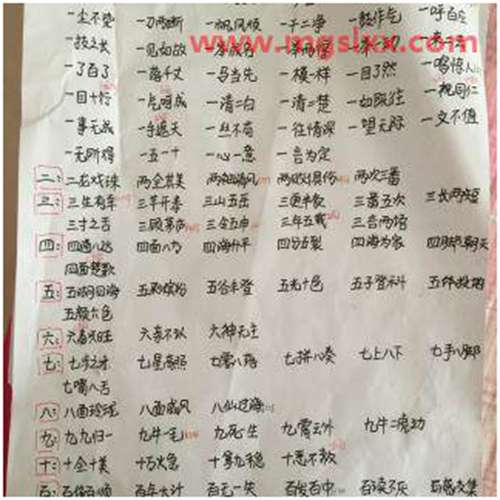 一尘不染 一刀两断 一帆风顺 一干二净 一鼓作气 一呼百应
www.mgslxx.com
一技之长 一见如故
一了百了 一落千丈 一马当先 一模一样 一目了然 一鸣惊人
一目十行 一气呵成 一清二白 一清二楚 一如既往 一视同仁
一事无成 一手遮天 一丝不苟 一往情深 一望无际 一文不值
一无所得 一五一十 一心一意 一言为定
二: 二龙戏珠 两全其美 两袖清风 两败俱伤 两次三番
三: 三生有幸 三羊开泰 三山五岳 三更半夜 三番五次 三长两短
三寸之舌 三顾茅庐 三令五申 三年五载 三言两语
四: 四通八达 四面八方 四海升平 四分五裂 四海为家 四脚朝天
四面楚歌
五: 五湖四海 五彩缤纷 五谷丰登 五光十色 五子登科 五体投地
五颜六色
六: 六畜兴旺 六亲不认 六神无主
七: 七步之才 七星高照 七零八落 七拼八凑 七上八下 七手八脚
七嘴八舌
八: 八面玲珑 八面威风 八仙过海
九: 九九归一 九牛一毛 九死一生 九霄云外 九牛二虎之力
十: 十全十美 十万火急 十拿九稳 十恶不赦
百: 百依百顺 百年大计 百发百中 百读不厌